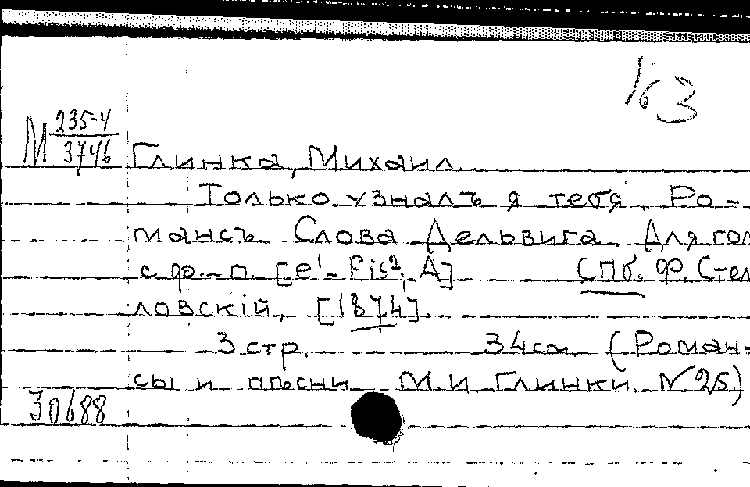 163
М 235-4
3746
Глинка, Михаил.
Только узналъ я тебя. Ро-
мансъ. Слова Дельвига. Для гол
с ф.-п. [e¹-Fis², A] СПб. Ф. Стел
ловскiй, [1874].
3 стр. 34см. (Роман-
сы и пѣсни М. И. Глинки. N 25)
30688